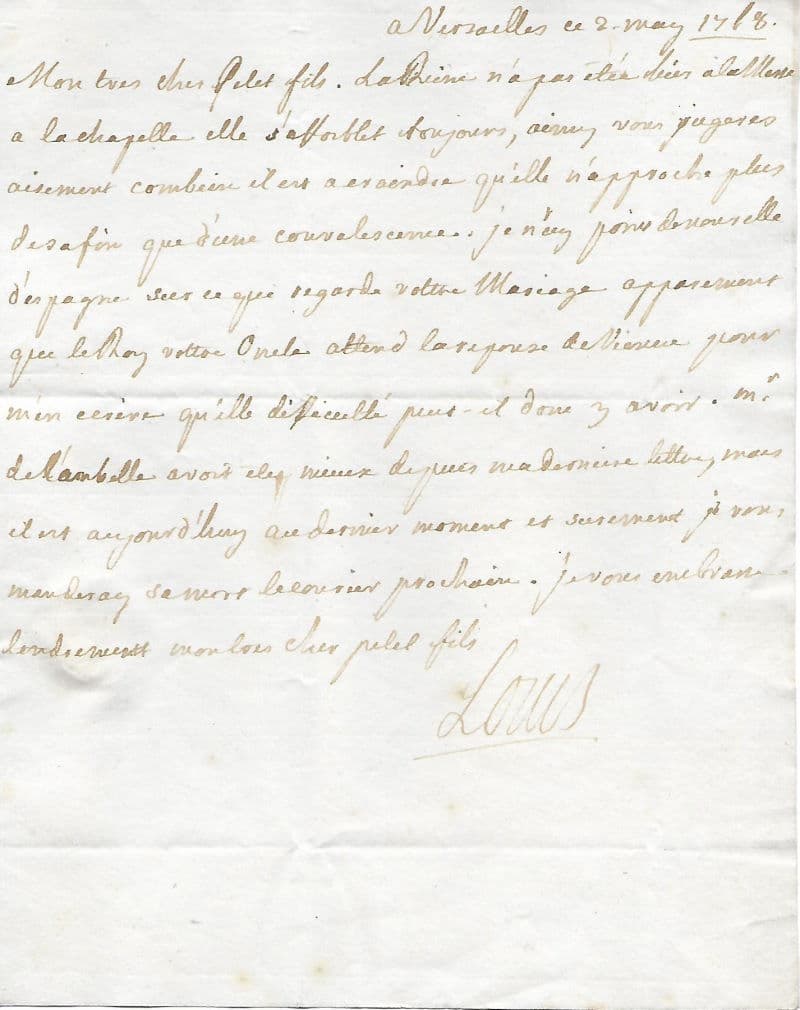 a Versaelles ce 2. may 1768.
Mon tres cher Petet fils. La Reine n'a pas été hier a la Messe
a la chapelle elle s'affoiblet toujours, ainsy vous jugeres
aisement combien il est a craindre qu'elle n'approche plus
de sa fin que d'une convalescence. je n'ay point de nouvelle
d'espagne sur ce que regarde vottre Mariage apparement
que le Roy vottre Oncle attend la reponse de Vienne pour
m'en ecrire qu'elle difficulté peut-il donc y avoir. mr
de Lamballe avoit été mieux depuis ma derniere lettre, mais
il est aujourd'huy au dernier moment et surement je vous
manderay sa mort le courier prochain. je vous embrasse
tendrement mon tres cher petet fils
Louis